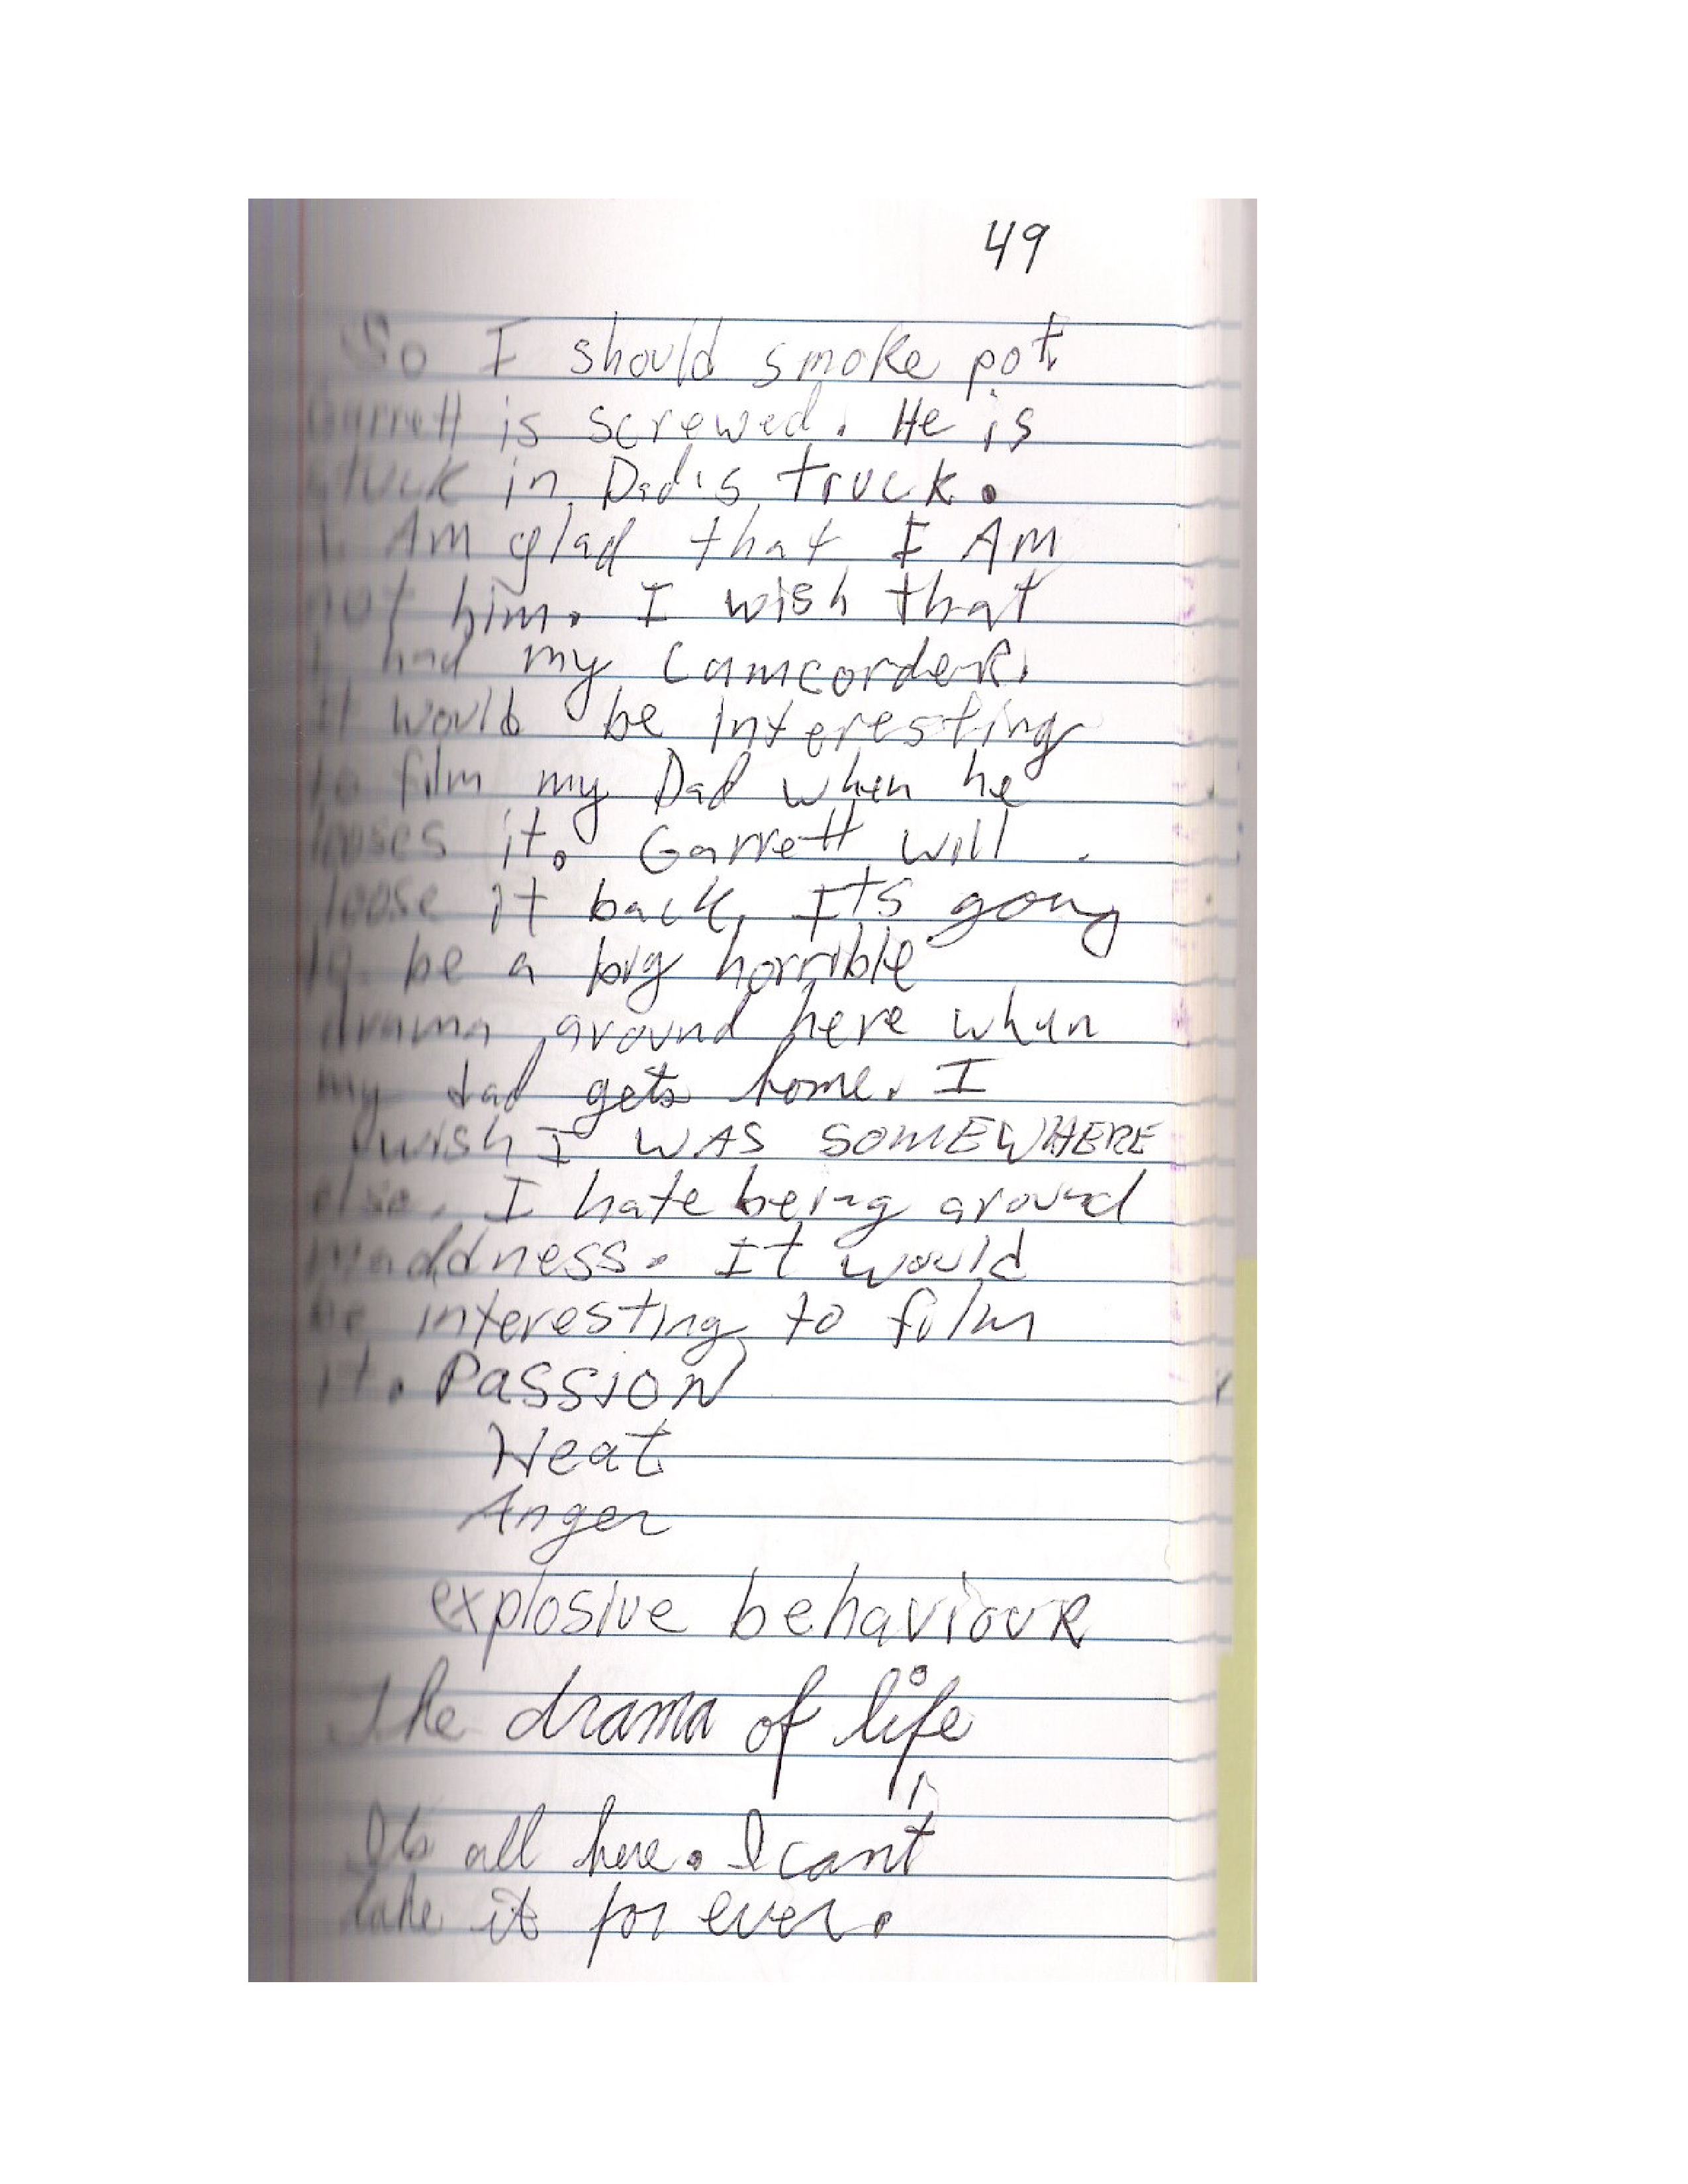 49
So I should smoke pot
Garrett is screwed. He is
stuck in Dad's truck.
I Am glad that I AM
not him. I wish that
I had my camcordeR.
It would be interesting
to film my Dad when he
looses it. Garrett will
loose it back. It's going
to be a big horrible
drama around here when
my dad gets home. I
wish I WAS SOMEWHERE
else. I hate being around
maddness. It would
be interesting to film
it. PASSION
Heat
Anger
explosive behaviouR
The drama of life
Its all here. I cant
take it for ever.